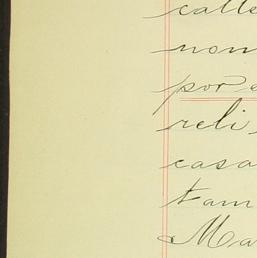 calle
nom
por e
reli
casa
tam
Ma